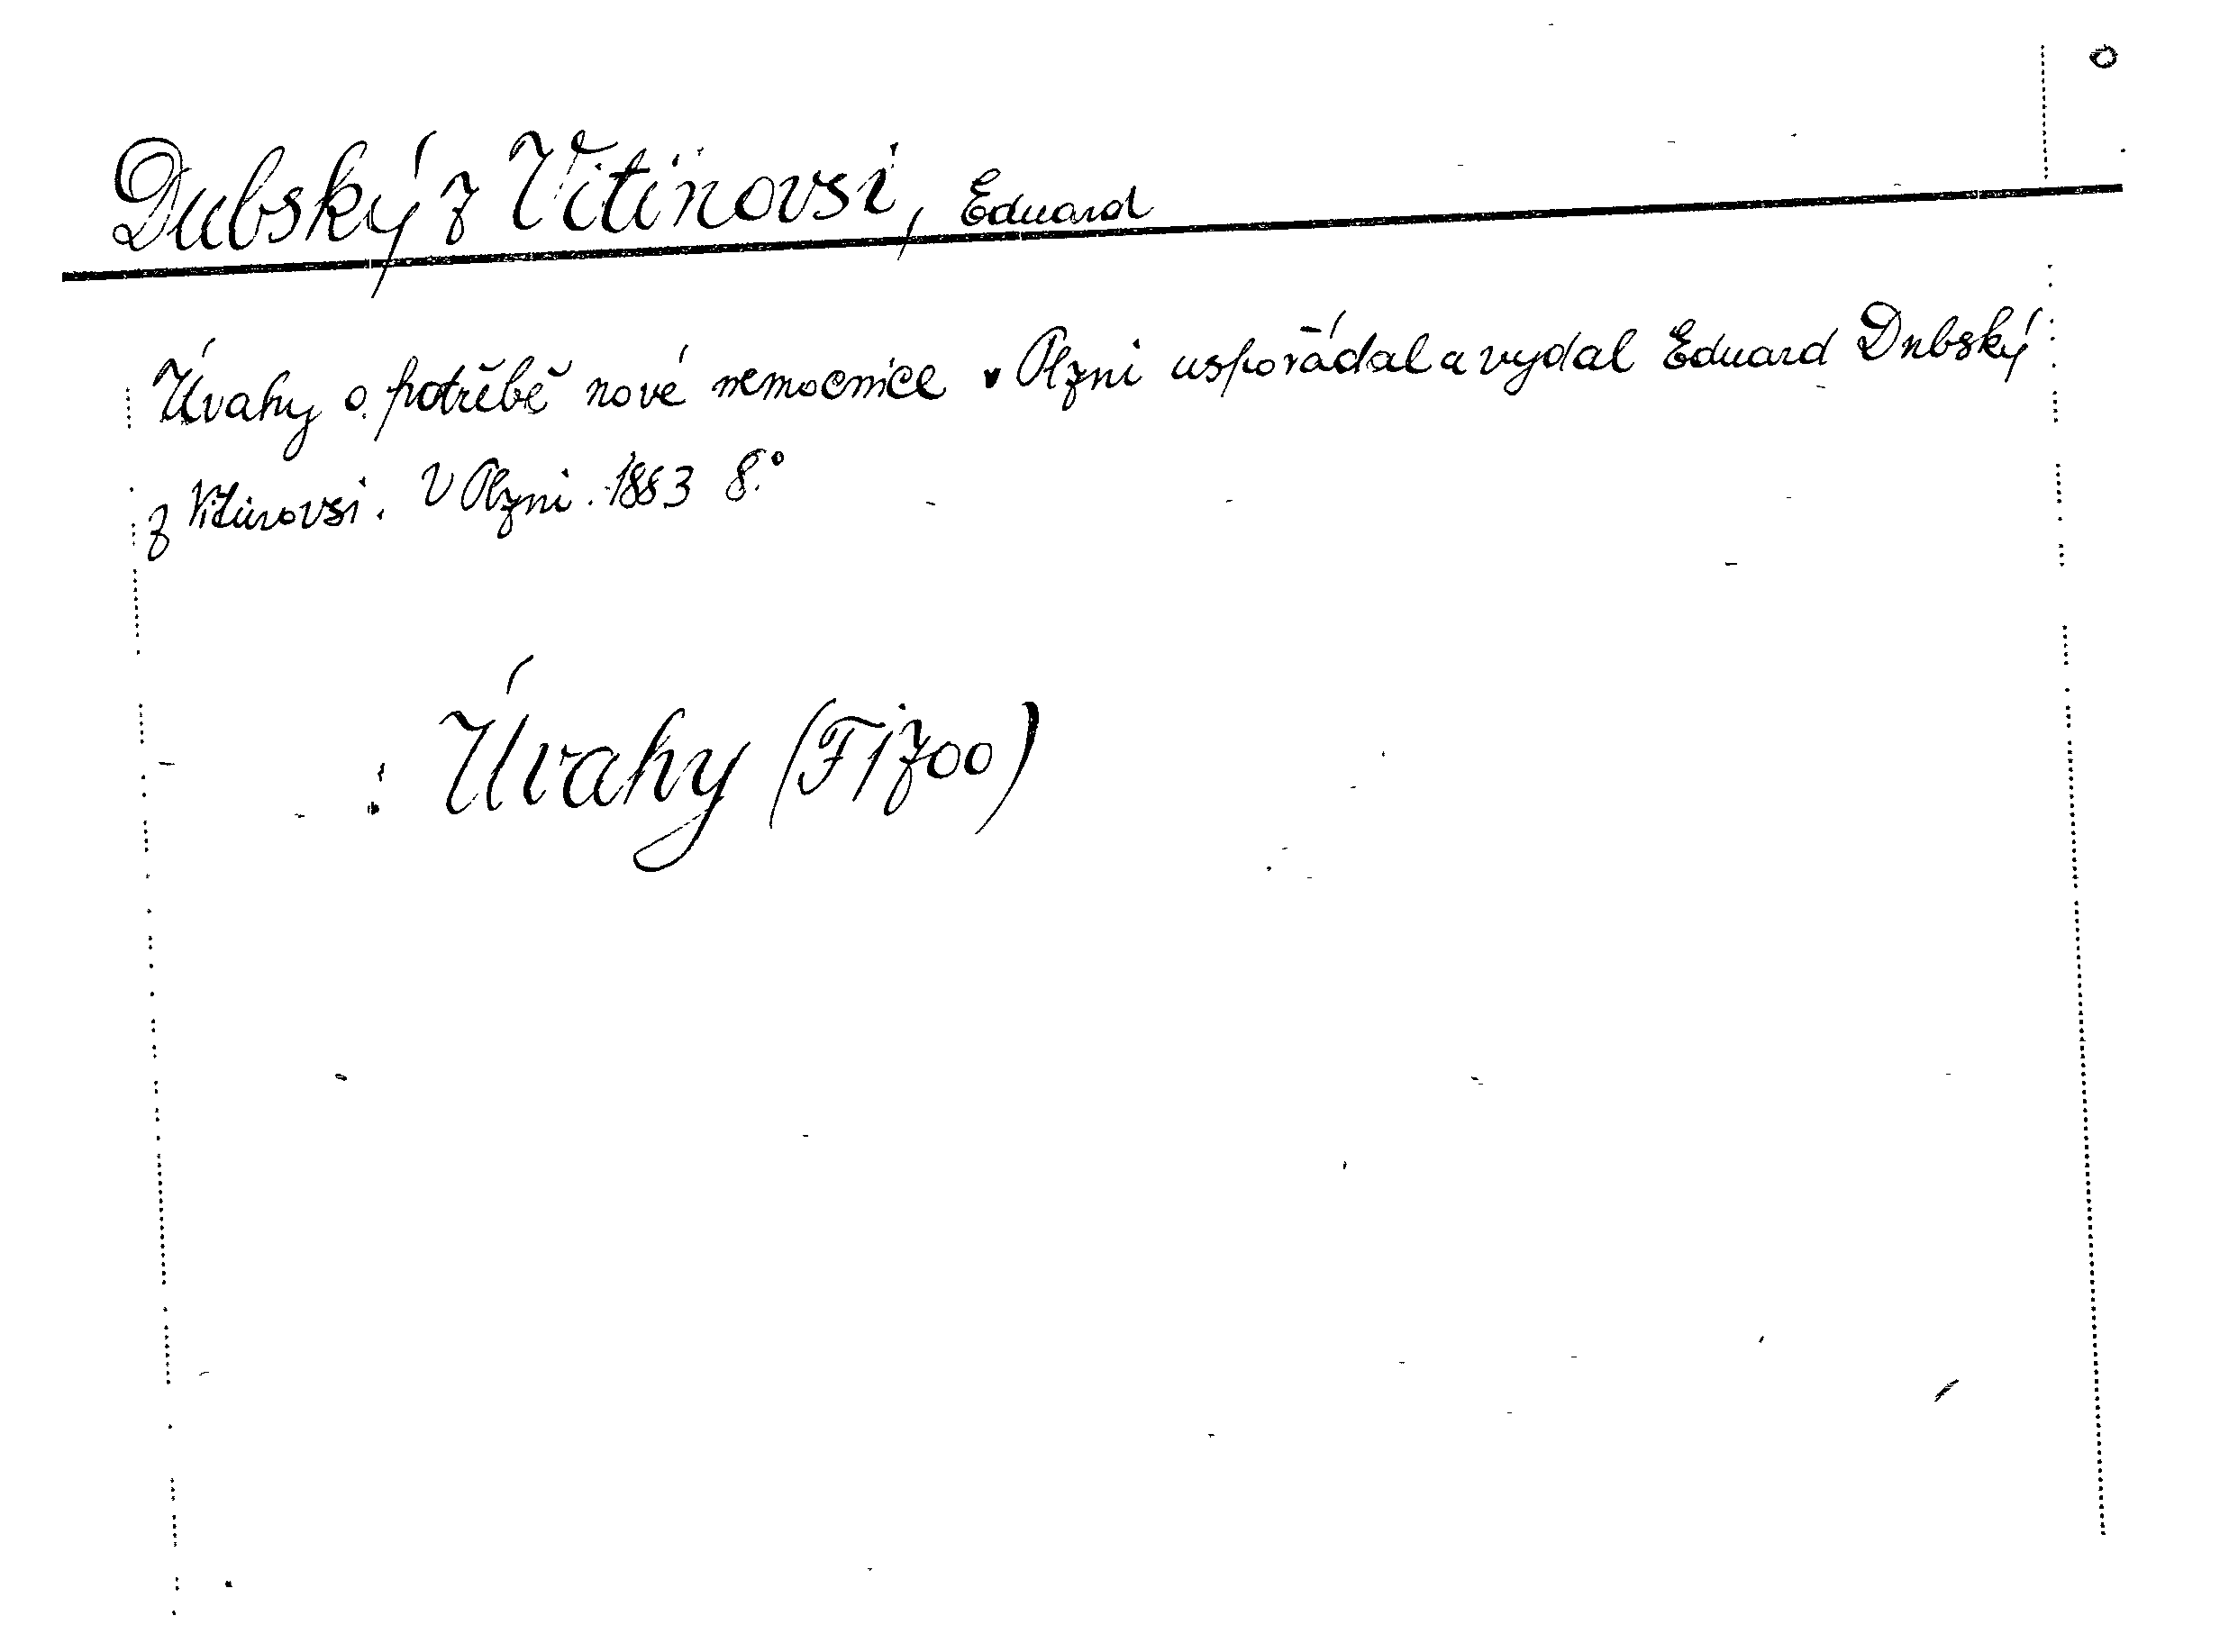 Dubský z Vitinovsi, Eduard
Úvahy o potřěbě nové nemocnice v Plzni uspořádal a vydal Eduard Dubský
z Vitinovsi. V Plzni. 1883 8.°
: Úvahy (F1700)